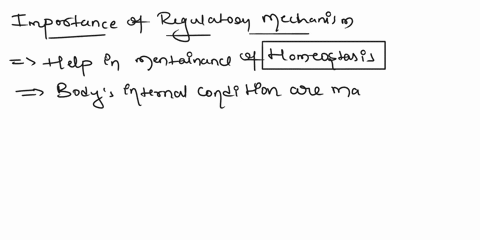 Importance of Regulatory Mechanism
=> Help in mentainance of Homeostasis
=> Body's internal condition are ma